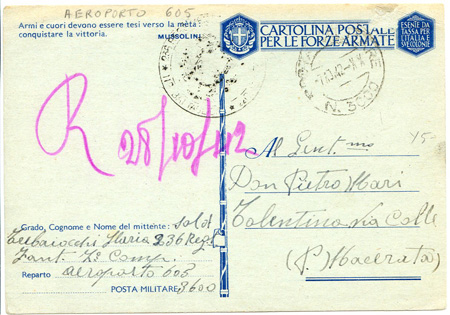 AEROPORTO 605
Armi e cuori devono essere tesi verso la mèta:
conquistare la vittoria.
MUSSOLINI
CARTOLINA POSTALE
PER LE FORZE ARMATE
ESENTE DA
TASSA PER
L'ITALIA E
SUE COLONIE
R 28/10/42
Al Gent.mo
Don Pietro Mari
Tolentino Via Colle
(P. Macerata)
150
Grado, Cognome e Nome del mittente: Solt
Ilario 236 Regg.
Fant. Comp.
Reparto Aeroporto 605
POSTA MILITARE, 3600